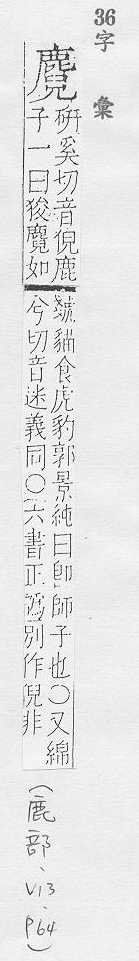 36 字彙
麑
硏奚切音倪鹿
子一曰狻麑如
虦貓食虎豹郭景純曰卽師子也○又綿
兮切音迷義同○六書正譌別作猊非
(鹿部、V13、P64)